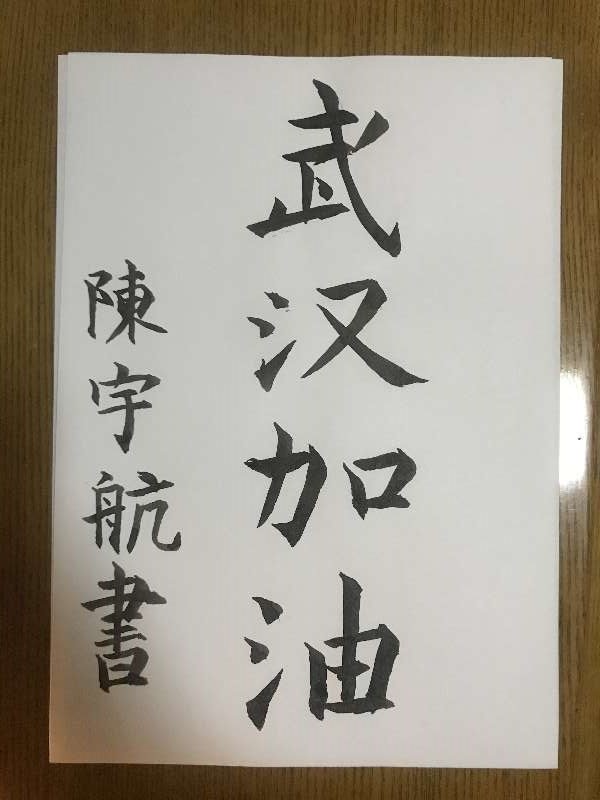 武汉加油
陳宇航書